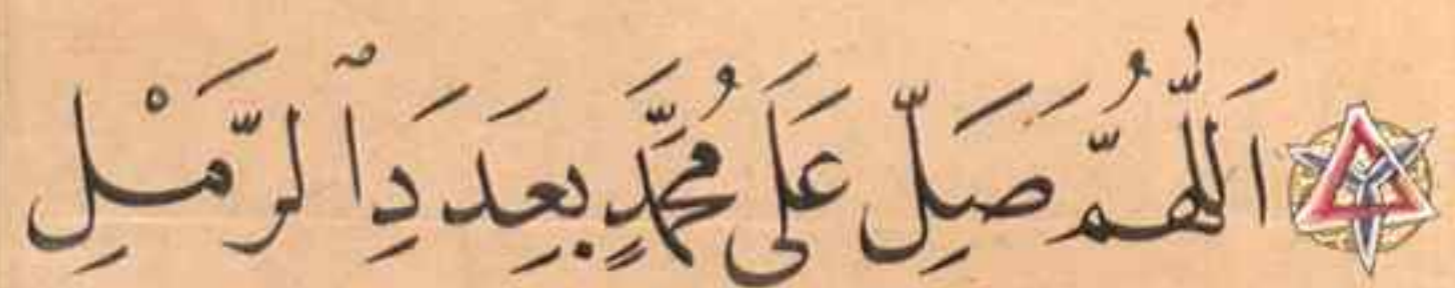 اَللّٰهُمَّ صَلِّ عَلَى مُحَمَّدٍ بِعَدَدِ ٱلرَّمْلِ